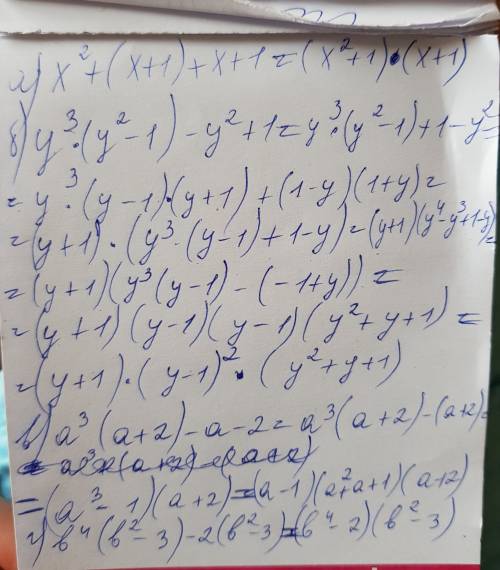 а) x² + (x+1) + x+1 = (x²+1)•(x+1)
б) y³•(y²-1) - y²+1 = y³•(y²-1)+1-y² =
= y³•(y-1)•(y+1) + (1-y)(1+y) =
= (y+1)•(y³•(y-1)+1-y) = (y+1)(y⁴-y³+1-y) =
= (y+1)(y³(y-1) - (-1+y)) =
= (y+1)(y-1)(y-1)(y²+y+1) =
= (y+1)•(y-1)²•(y²+y+1)
в) a³(a+2)-a-2 = a³(a+2)-(a+2) =
= (a³-1)(a+2) = (a-1)(a²+a+1)(a+2)
г) b⁴(b²-3)-2(b²-3) = (b⁴-2)(b²-3)